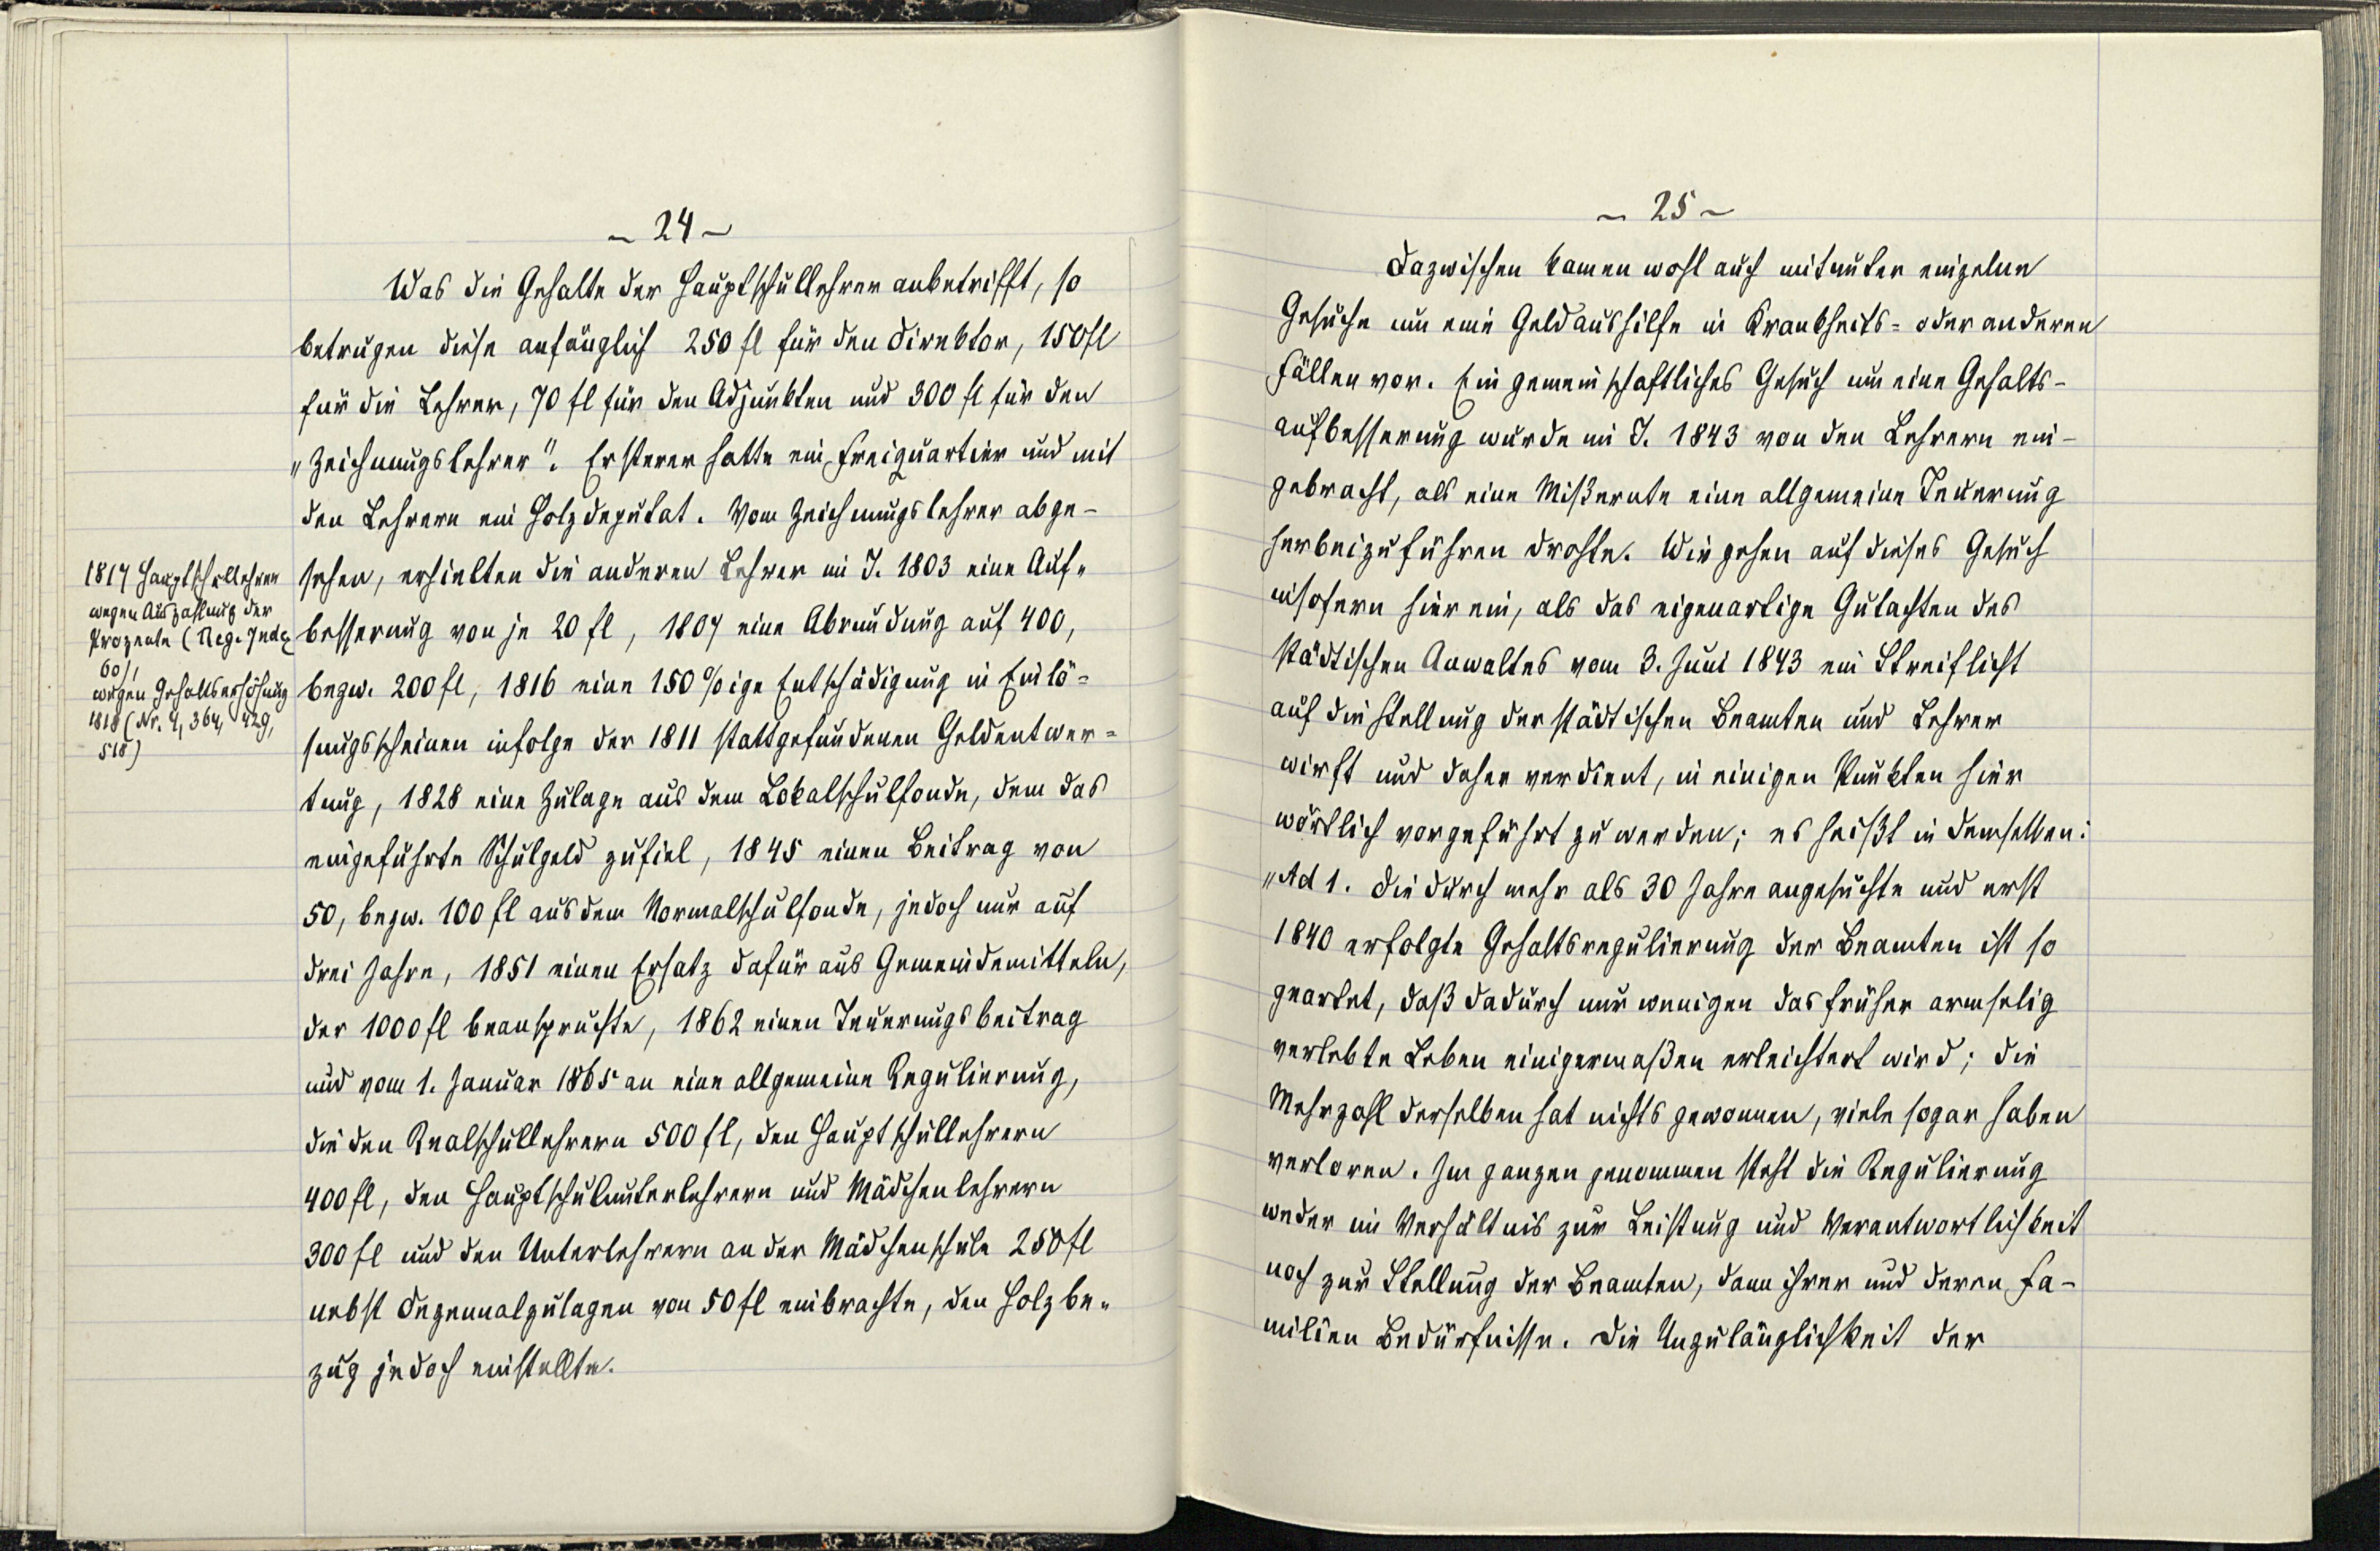 - 24 -
Was die Gehalte der Hauptschullehrer anbetrifft, so
betrugen diese anfänglich 250 fl für den Direktor, 150 fl
für die Lehrer, 70 fl für den Adjunkten und 300 fl für den
„Zeichnungslehrer". Ersterer hatte ein Freiquartier und mit
den Lehrern ein Holzdeputat. Vom Zeichnungslehrer abge-
sehen, erhielten die anderen Lehrer im J. 1803 eine Auf-
besserung von je 20 fl, 1807 eine Abrundung auf 400,
bezw. 200 fl, 1816 eine 150 %ige Entschädigung in Einlö-
sungsscheinen infolge der 1811 stattgefundenen Geldentwer-
tung, 1828 eine Zulage aus dem Lokalschulfonde, dem das
eingeführte Schulgeld zufiel, 1845 einen Beitrag von
50, bezw. 100 fl aus dem Normalschulfonde, jedoch nur auf
drei Jahre, 1851 einen Ersatz dafür aus Gemeindemitteln,
der 1000 fl beanspruchte, 1862 einen Teuerungsbeitrag
und vom 1. Januar 1865 an eine allgemeine Regulierung,
die den Realschullehrern 500 fl, den Hauptschullehrern
400 fl, den Hauptschulunterlehrern und Mädchenlehrern
300 fl und den Unterlehrern an der Mädchenschule 250 fl
nebst Dezennalzulagen von 50 fl einbrachte, den Holzbe-
zug jedoch einstellte.
1817 Hauptschullehrer
wegen Auszahlung der
Prozente (Reg. Index
60),
wegen Gehaltserhöhung
1818 (Nr. 4, 364, 429,
518)
- 25 -
Dazwischen kamen wohl auch mitunter einzelne
Gesuche um eine Geldaushilfe in Krankheits- oder anderen
Fällen vor. Ein gemeinschaftliches Gesuch um eine Gehalts-
aufbesserung wurde im J. 1843 von den Lehrern ein-
gebracht, als eine Mißernte eine allgemeine Teuerung
herbeizuführen drohte. Wir gehen auf dieses Gesuch
insofern hier ein, als das eigenartige Gutachten des
städtischen Anwaltes vom 3. Juni 1843 ein Streiflicht
auf die Stellung der städtischen Beamten und Lehrer
wirft und daher verdient, in einigen Punkten hier
wörtlich vorgeführt zu werden; es heißt in demselben:
„Ad 1. Die durch mehr als 30 Jahre angesuchte und erst
1840 erfolgte Gehaltsregulierung der Beamten ist so
geartet, daß dadurch nur wenigen das früher armselig
verlebte Leben einigermaßen erleichtert wird; die
Mehrzahl derselben hat nichts gewonnen, viele sogar haben
verloren. Im ganzen genommen steht die Regulierung
weder im Verhältnis zur Leistung und Verantwortlichkeit
noch zur Stellung der Beamten, dann ihrer und deren Fa-
milien Bedürfnisse. Die Unzulänglichkeit der